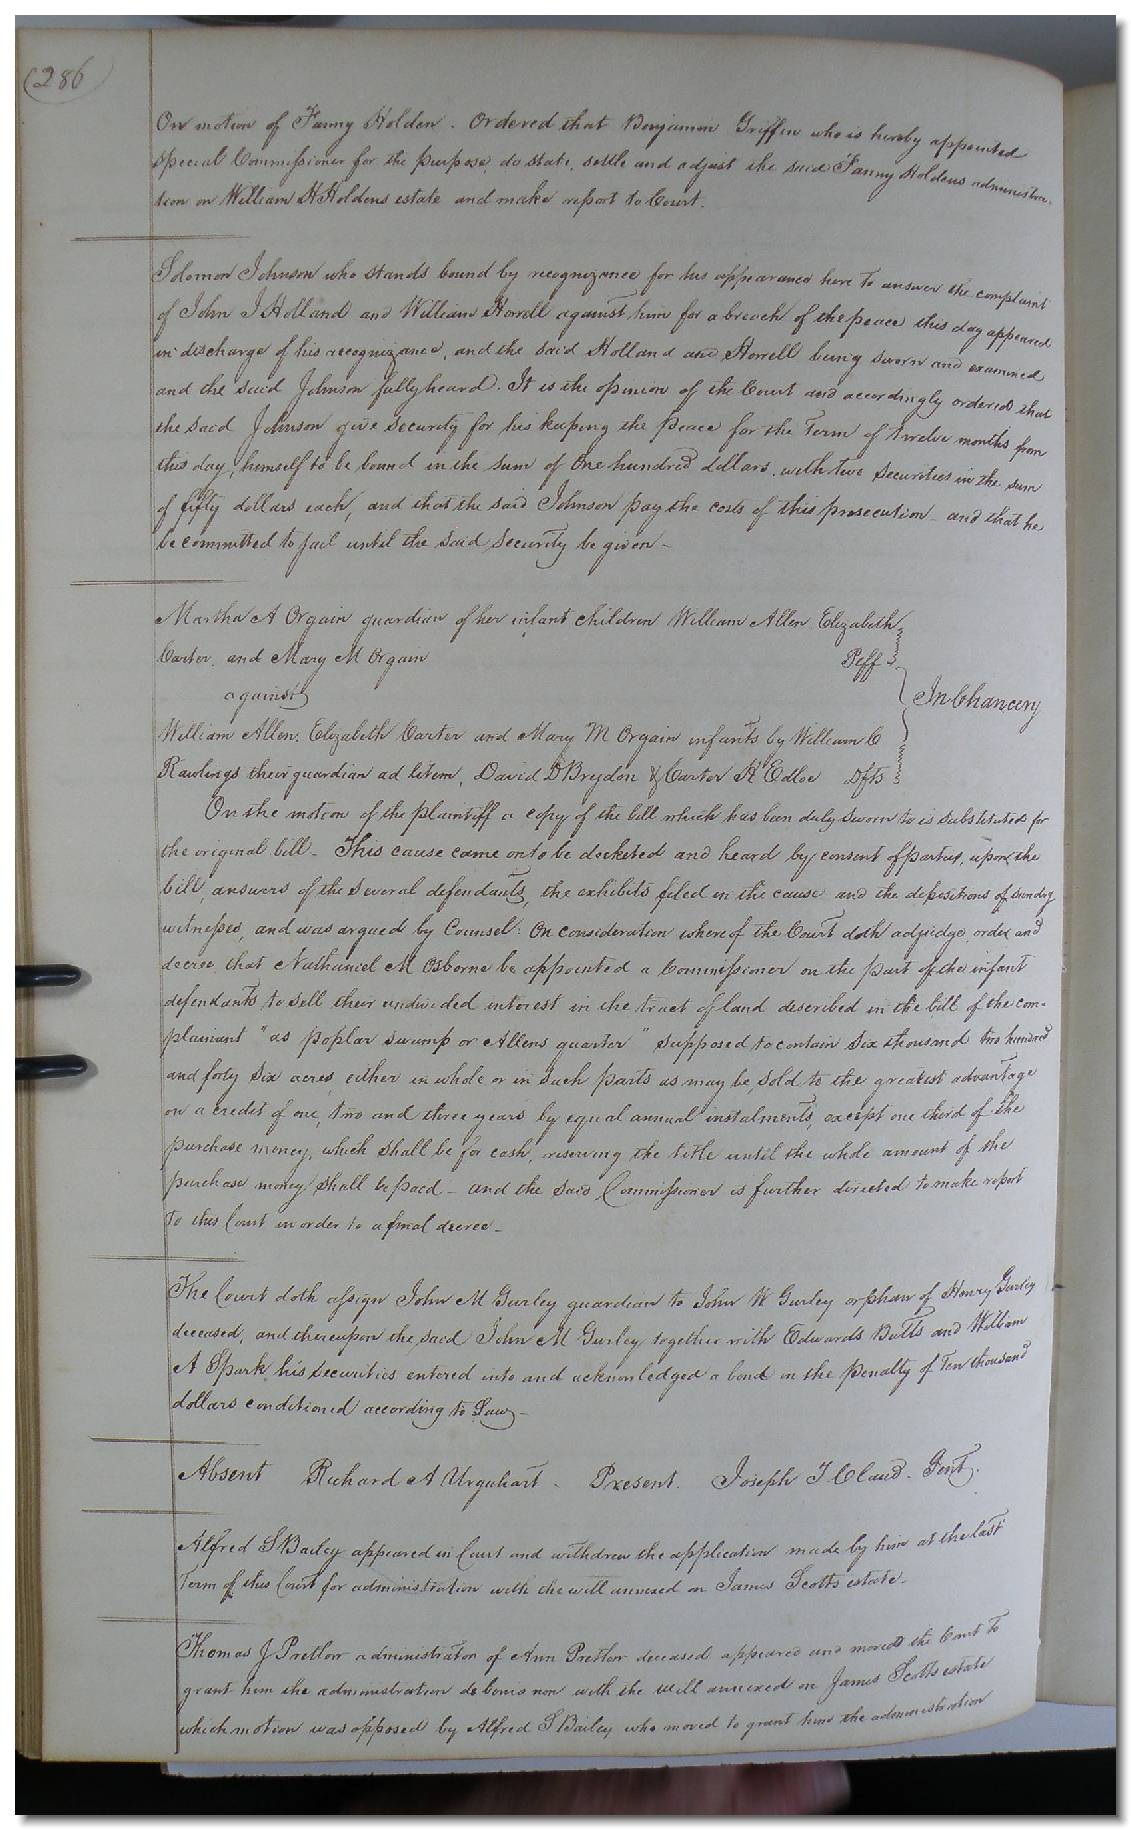 286
On motion of Fanny Holden. Ordered that Benjamin Griffin who is hereby appointed
special Commissioner for the purpose, do state, settle and adjust the said Fanny Holdens administra-
tion on William H Holdens estate and make report to Court.
Solomon Johnson who stands bound by recognizance for his appearance here to answer the complaint
of John J Holland and William Horrell against him for a breach of the peace this day appeared
in discharge of his recognizance, and the said Holland and Horrell being sworn and examined
and the said Johnson fully heard. It is the opinion of the Court and accordingly ordered that
the said Johnson give security for his keeping the peace for the Term of twelve months from
this day, himself to be bound in the sum of One hundred dollars, with two securities in the sum
of fifty dollars each, and that the said Johnson pay the costs of this prosecution - and that he
be committed to jail until the said security be given -
Martha A Orgain guardian of her infant children William Allen Elizabeth
Carter and Mary M Orgain Plff
against
In Chancery
William Allen, Elizabeth Carter and Mary M Orgain infants by William C
Rawlings their guardian ad litem, David D Brydon & Carter H Edloe Dfts
On the motion of the plaintiff a copy of the bill which has been duly sworn to is substituted for
the original bill - This cause came on to be docketed and heard by consent of parties, upon the
bill, answers of the several defendants, the exhibits filed in the cause and the depositions of sundry
witnesses, and was argued by Counsel: On consideration whereof the Court doth adjudge, order and
decree, that Nathaniel M Osborne be appointed a Commissioner on the part of the infant
defendants to sell their undivided interest in the tract of land described in the bill of the com-
plainant "as poplar swamp or Allens quarter" supposed to contain six thousand two hundred
and forty six acres either in whole or in such parts as may be sold to the greatest advantage
on a credit of one, two and three years by equal annual instalments, except one third of the
purchase money, which shall be for cash, reserving the title until the whole amount of the
purchase money shall be paid - and the said Commissioner is further directed to make report
to this Court in order to a final decree -
The Court doth assign John M Gurley guardian to John W Gurley orphan of Henry Gurley
deceased, and thereupon the said John M Gurley together with Edwards Butts and William
A Spark his securities entered into and acknowledged a bond in the penalty of Ten thousand
dollars conditioned according to Law -
Absent Richard A Urquhart - Present. Joseph T Claud - Gent.
Alfred S Bailey appeared in Court and withdrew the application made by him at the last
Term of this Court for administration with the will annexed on James Scotts estate -
Thomas J Pretlow administrator of Ann Pretlow deceased appeared and moved the Court to
grant him the administration de bonis non with the will annexed on James Scotts estate
which motion was opposed by Alfred S Bailey who moved to grant him the administration